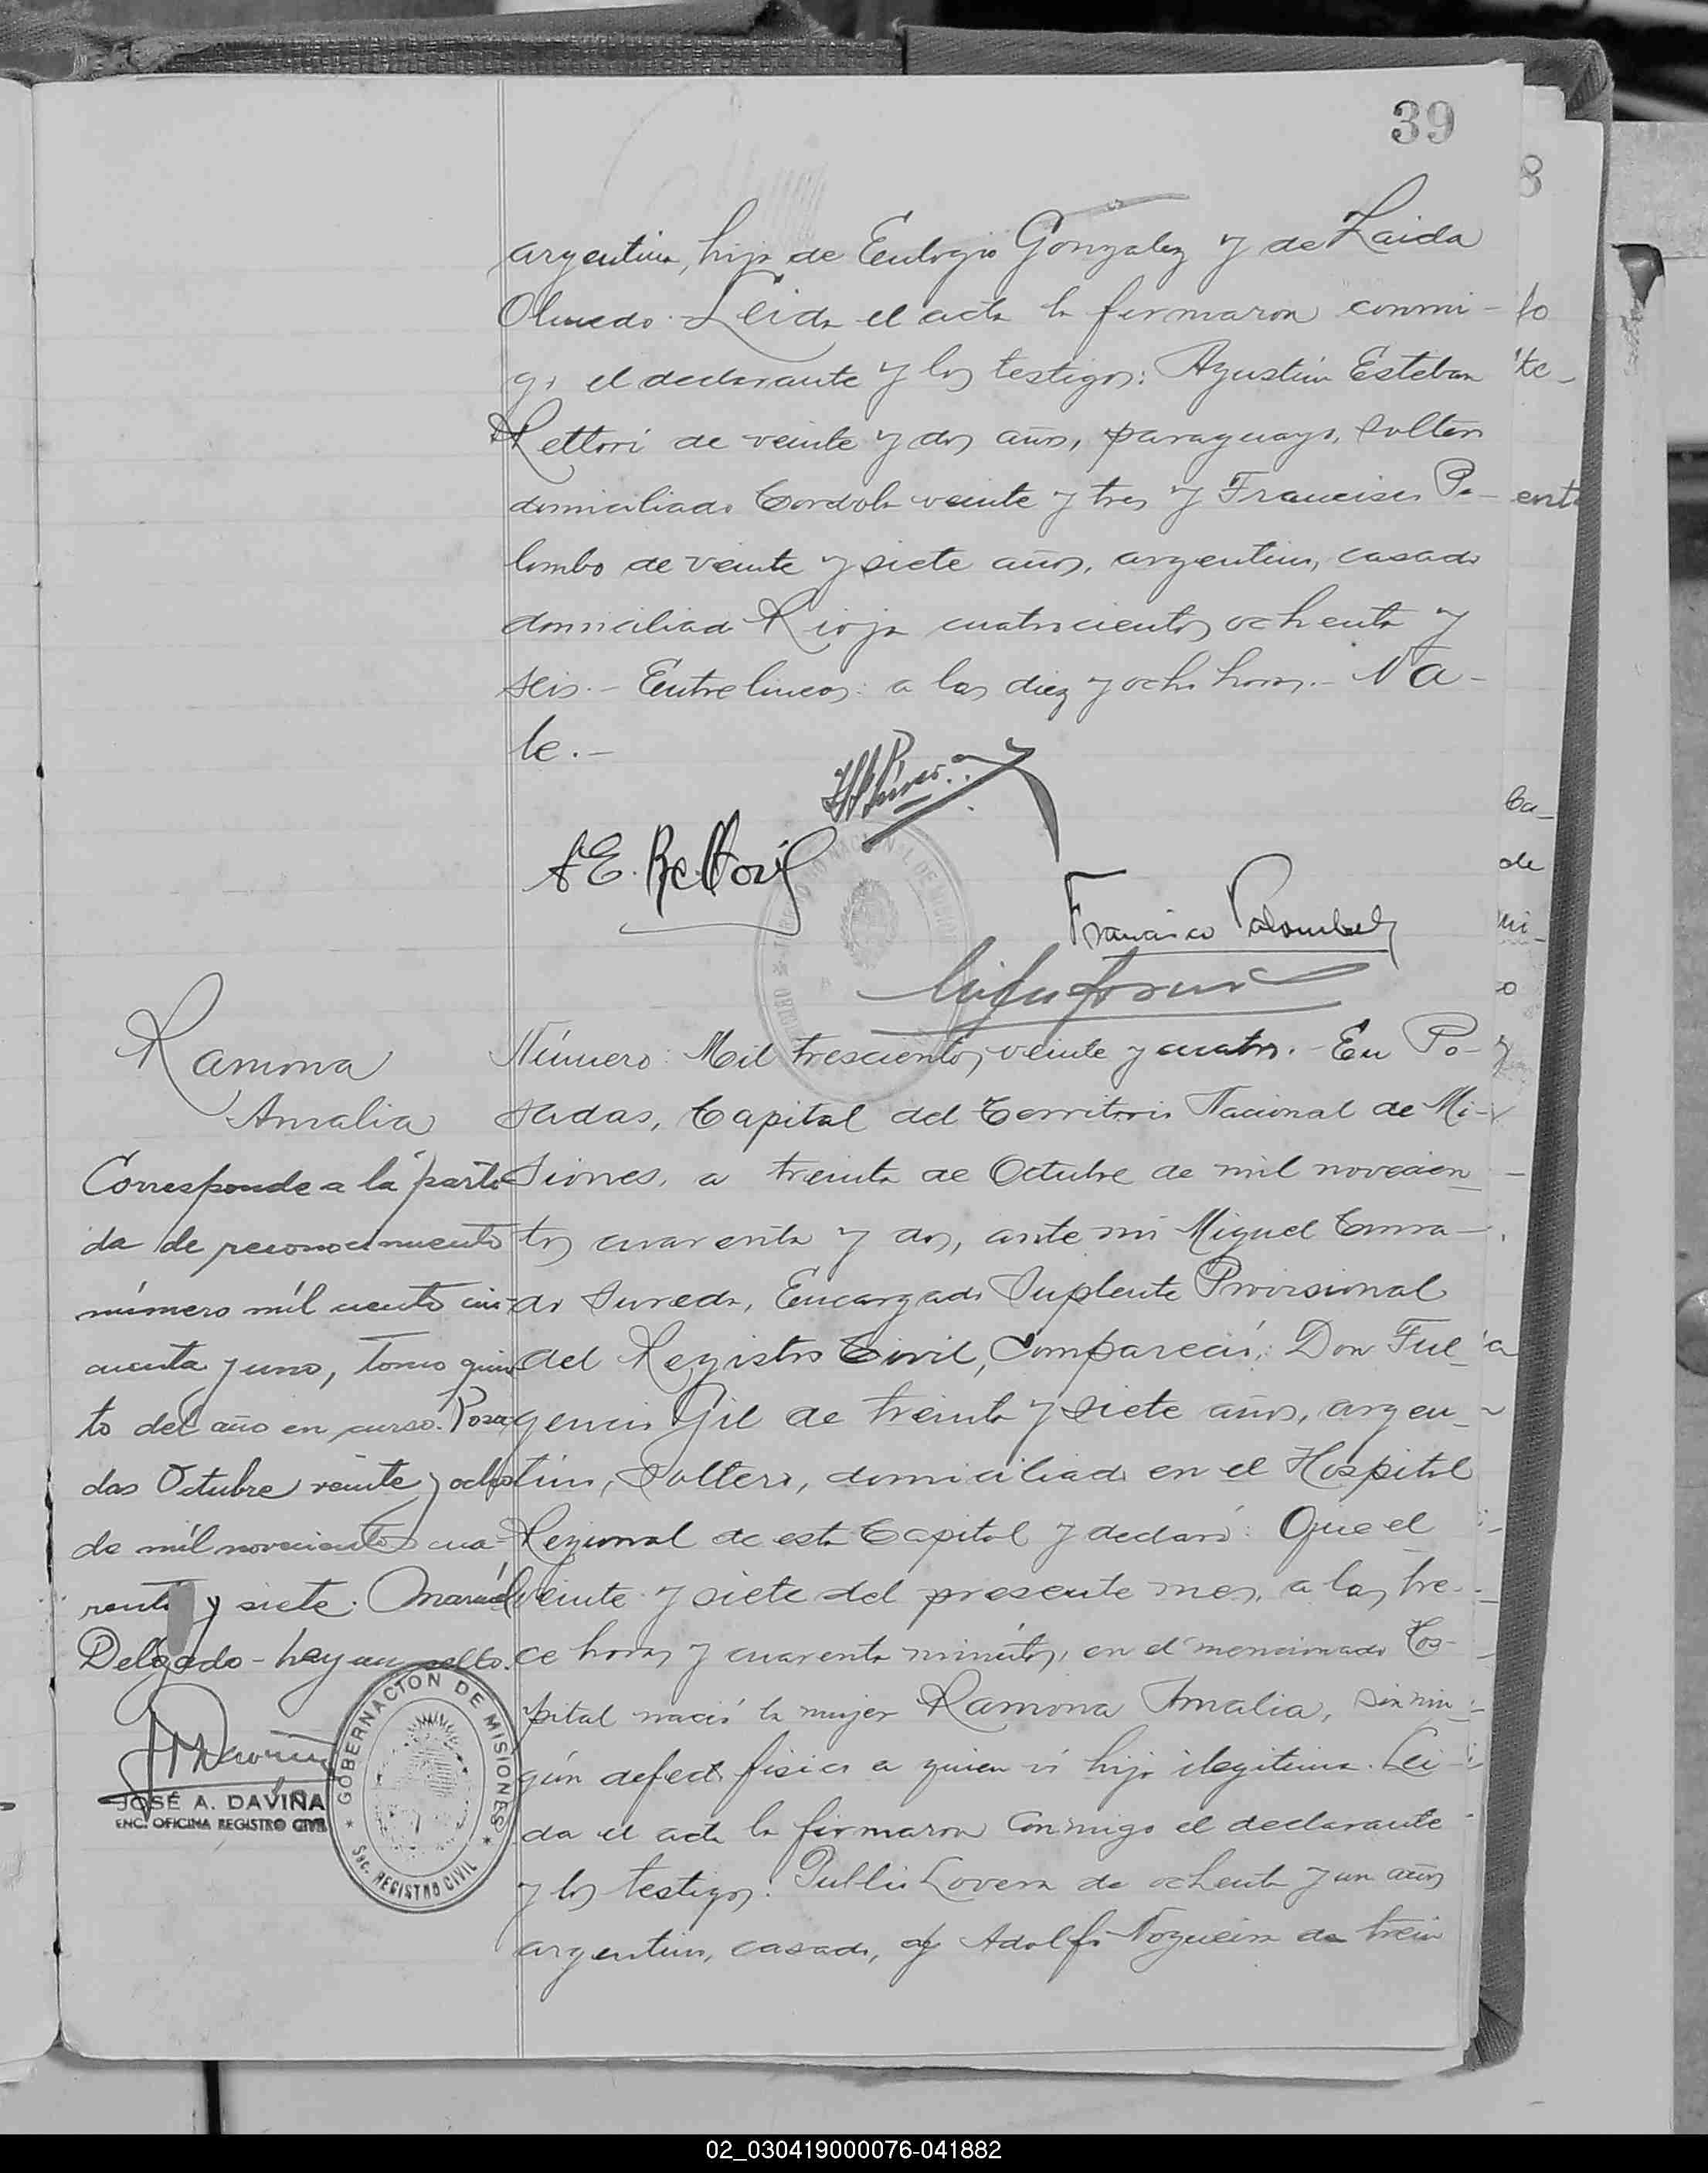 39
argentina, hija de Eulogio Gonzalez y de Zaida
Olmedo. Leida el acta la firmaron conmi-
go el declarante y los testigos: Agustin Esteban
Rettori de veinte y dos años, paraguayo, soltero
domiciliado Cordoba veinte y tres y Francisco Pa-
lombo de veinte y siete años, argentino, casado
domiciliado Rioja cuatrocientos ochenta y
seis.- Entrelineas: a las diez y ocho horas.- Va-
le.-
A.E. Rettori
Francisco Palombo
Ramona
Amalia
Corresponde a la parti
da de reconocimiento
número mil ciento cin-
cuenta y uno, tomo quin
to del año en curso. Posa-
das Octubre veinte y ocho
de mil novecientos cua-
renta y siete. Manuel
Delgado - hay un sello.
JOSÉ A. DAVIÑA
ENC. OFICINA REGISTRO CIVIL
GOBERNACION DE MISIONES
Sec. REGISTRO CIVIL
Número: Mil trescientos veinte y cuatro.- En Po-
sadas, Capital del Territorio Nacional de Mi-
siones, a treinta de Octubre de mil novecien-
tos cuarenta y dos, ante mi Miguel Conra-
do Sureda, Encargado Suplente Provisional
del Registro Civil, Compareció: Don Ful-
gencio Gil de treinta y siete años, argen-
tino, soltero, domiciliado en el Hospital
Regional de esta Capital y declaró: Que el
veinte y siete del presente mes, a las tre-
ce horas y cuarenta minutos, en el mencionado Hos-
pital nació la mujer Ramona Amalia, sin nin-
gún defecto fisico a quien vi hija ilegitima. Lei-
da el acta la firmaron conmigo el declarante
y los testigos: Publio Lovera de ochenta y un años
argentino, casado, y Adolfo Nogueira de trein
02_030419000076-041882